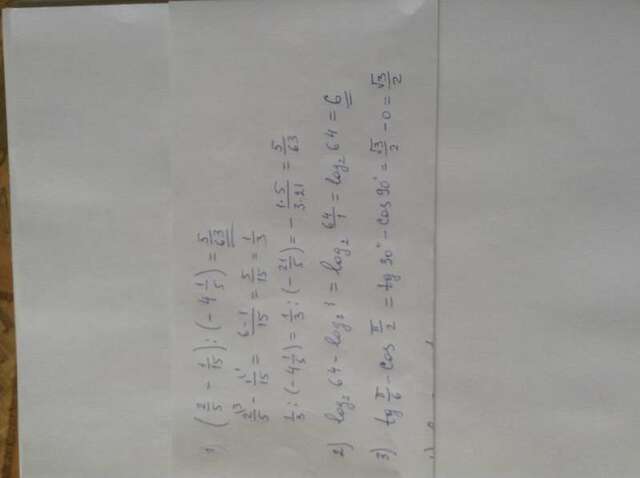 1) (2/5 - 1/15) : (-4 1/5) = 5/63
2/5 \3 - 1/15 \1 = 6-1/15 = 5/15 = 1/3
1/3 : (-4 1/5) = 1/3 : (-21/5) = - 1·5/3·21 = 5/63
2) log₂ 64 - log₂ 1 = log₂ 64/1 = log₂ 64 = 6
3) tg π/6 - cos π/2 = tg 30° - cos 90° = √3/2 - 0 = √3/2